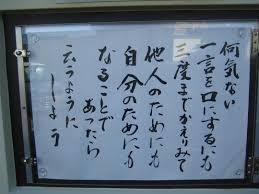 何気ない
一言を口にするにも
三度までかえりみて
他人のためにも
自分のためにも
なることで
あったら
云うように
しよう